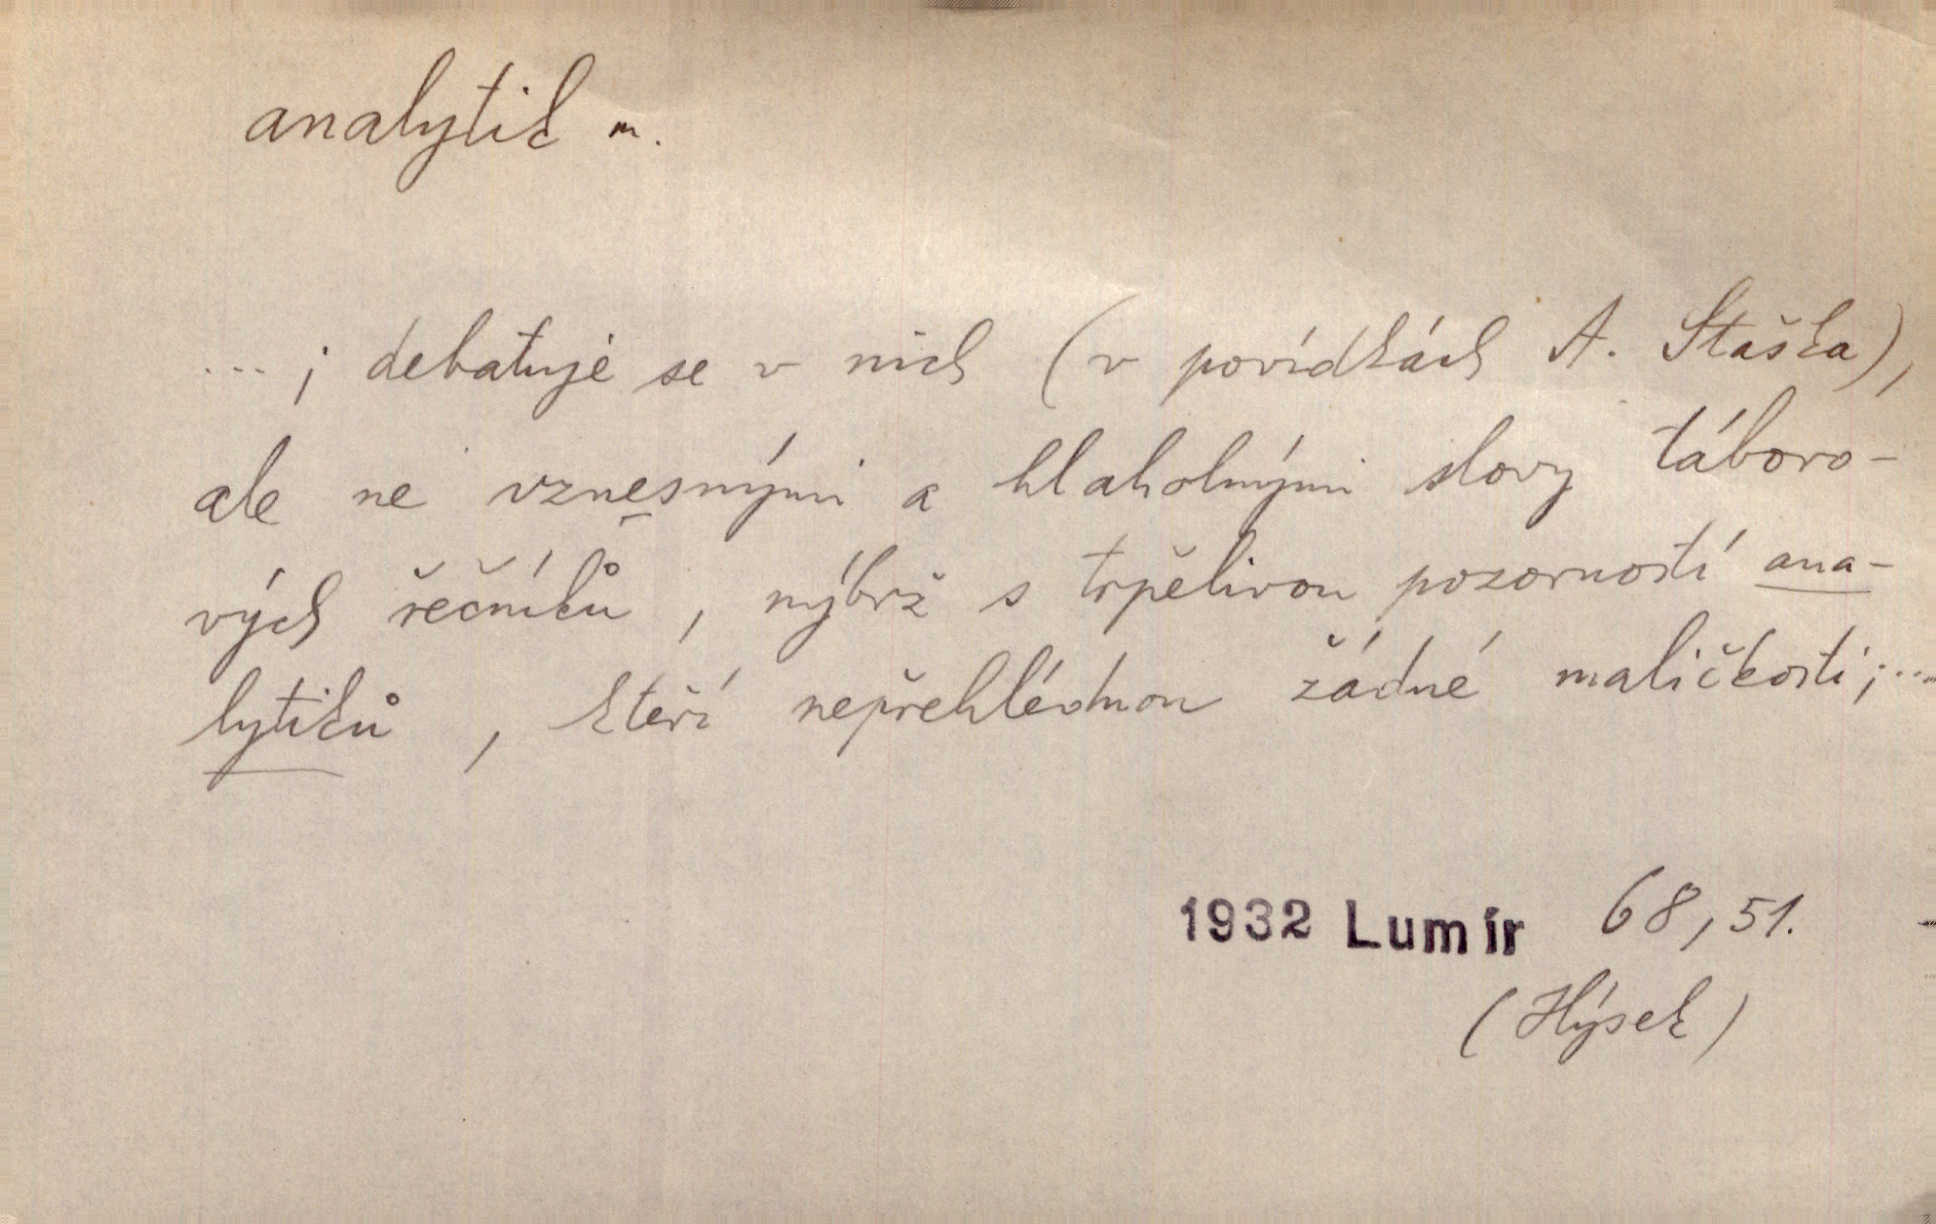 analytik m.
...; debatuje se v nich (v povídkách A. Staška),
ale ne vznesnými a hlaholnými slovy táboro-
vých řečníků, nýbrž s trpělivou pozorností ana-
lytiků, kteří nepřehlédnou žádné maličkosti;...
1932 Lumír 68, 51.
(Hýsek)